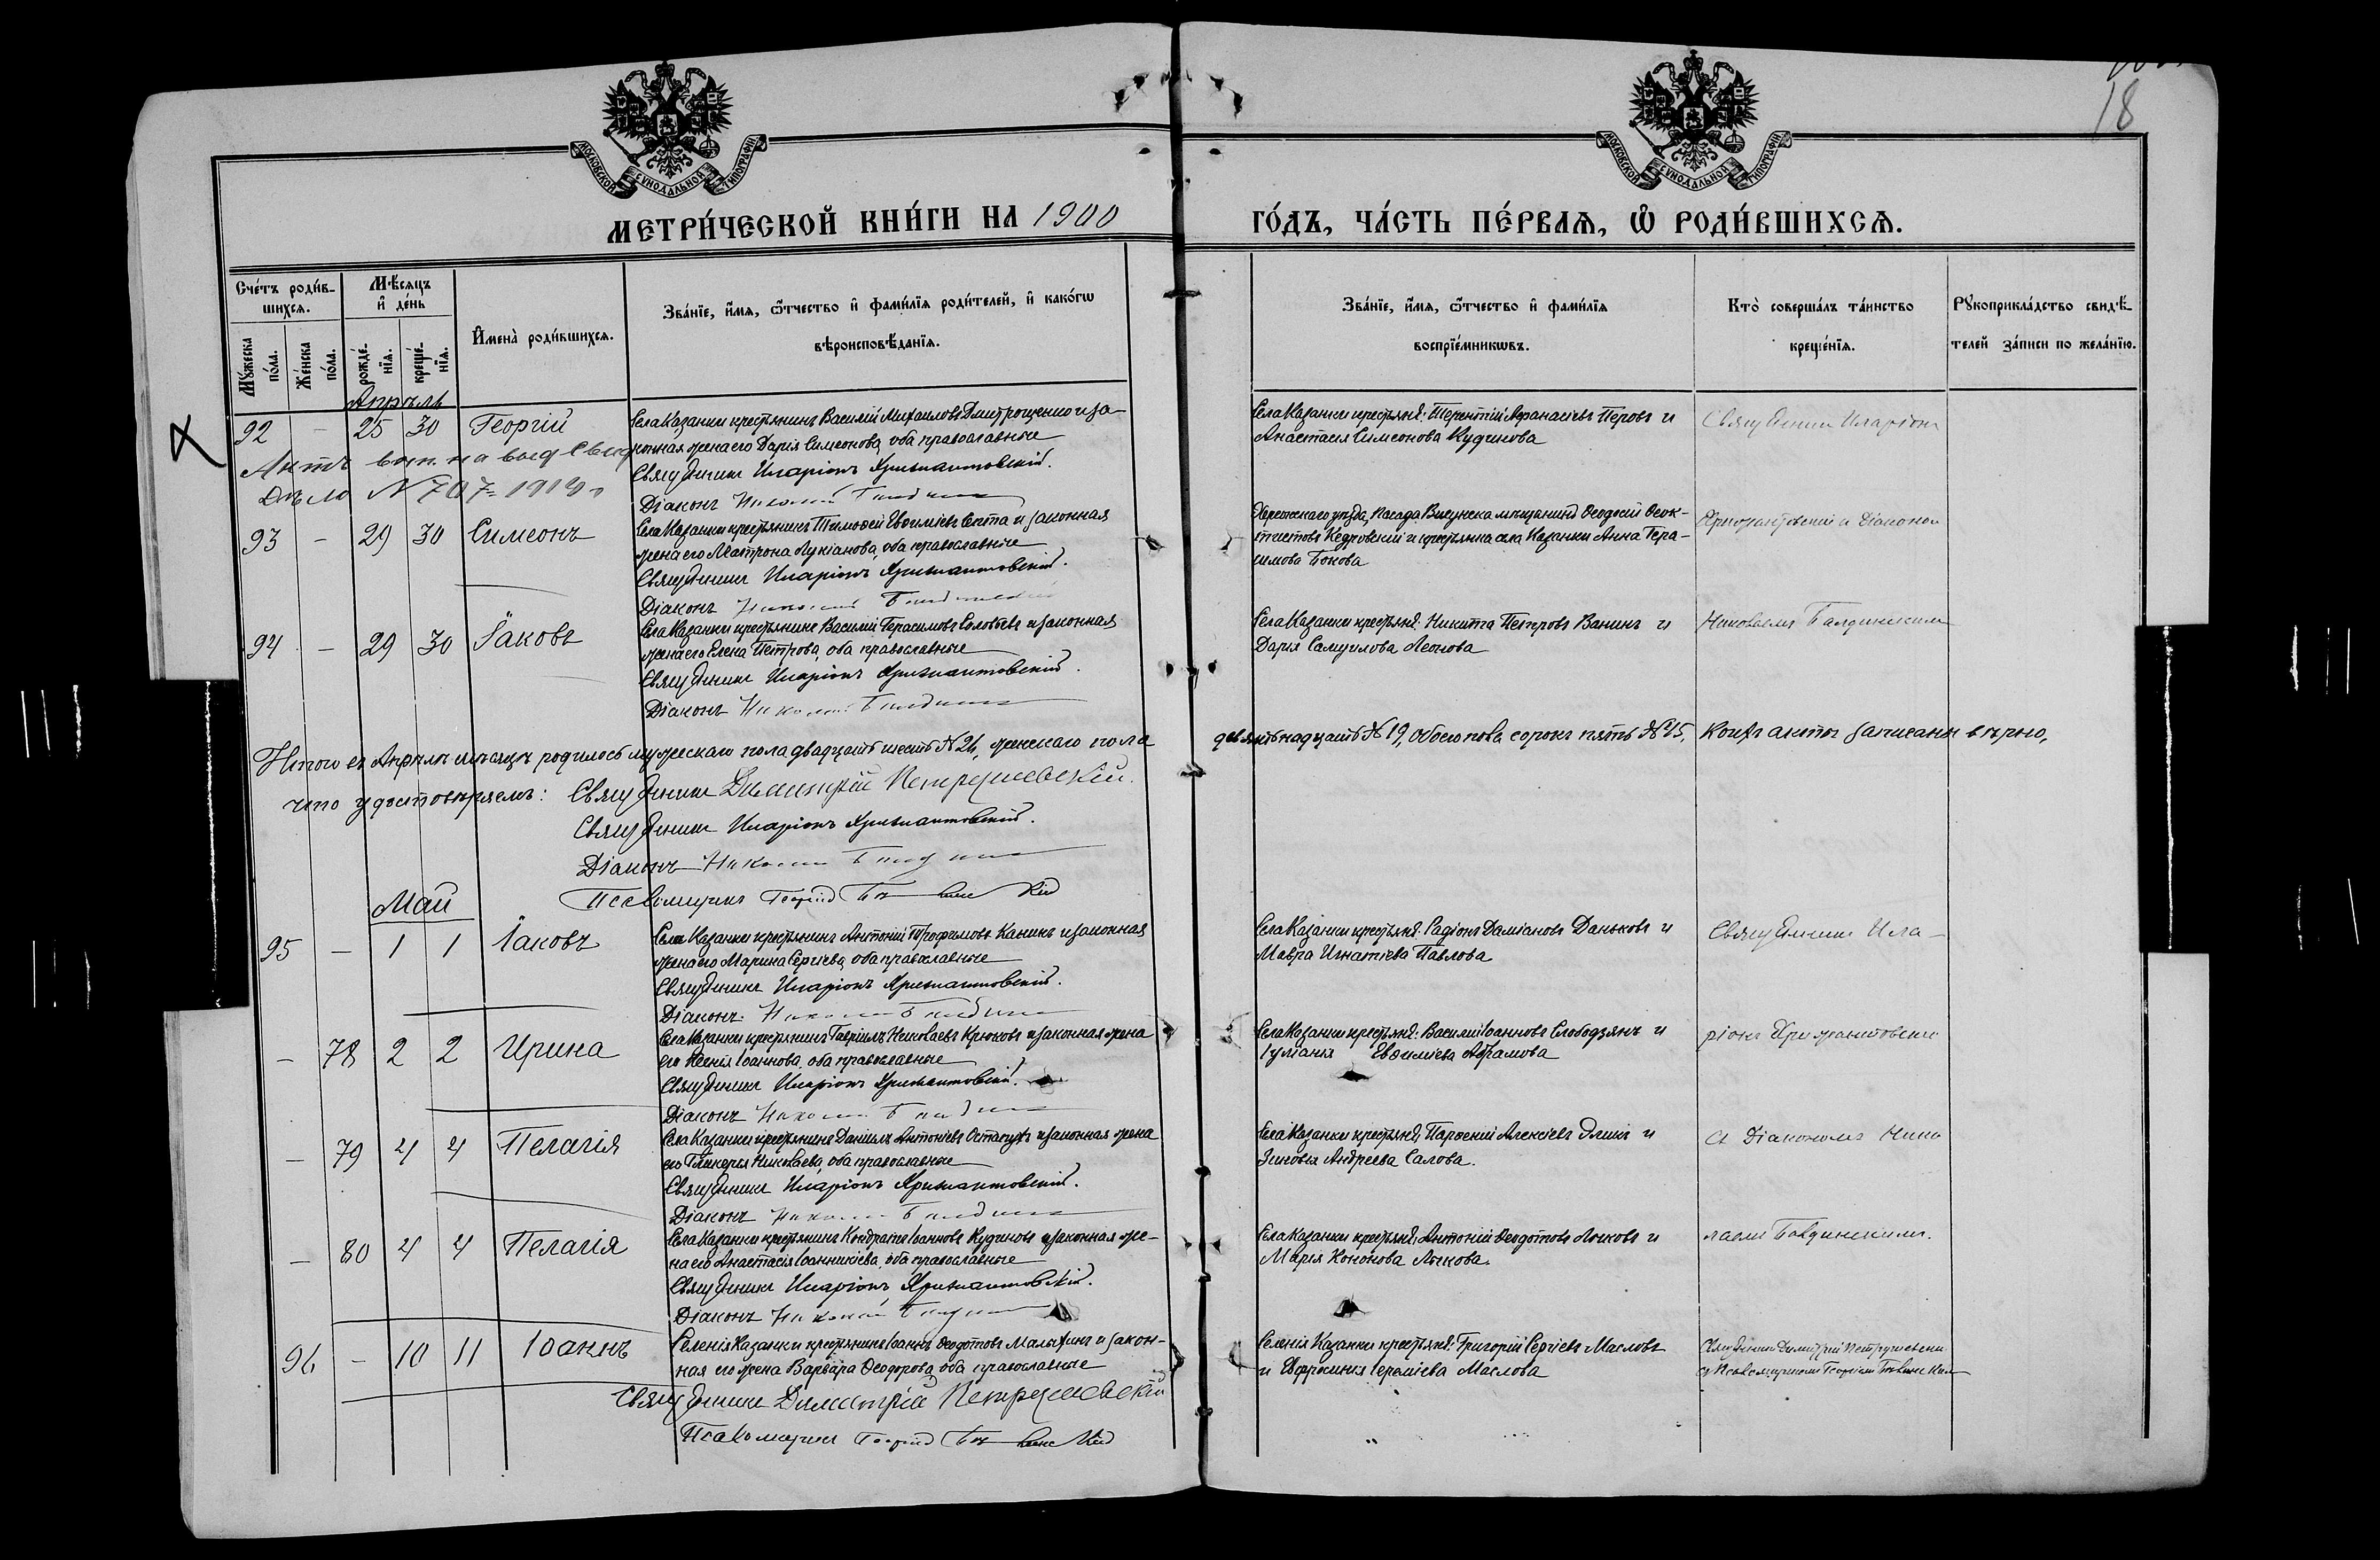 18
МОСКОВСКОЙ СУНОДАЛЬНОЙ ТИПОГРАФІИ
МОСКОВСКОЙ СУНОДАЛЬНОЙ ТИПОГРАФІИ
МЕТРИ́ЧЕСКОЙ КНИ́ГИ НА 1900
ГО́ДЪ, ЧА́СТЬ ПЕ́РВАѦ, Ѡ҆ РОДИ́ВШИХСѦ.
Сче́тъ роди́в-
шихсѧ.
Мꙋ́жеска по́ла.
Же́нска по́ла.
Мѣ́сѧцъ
и҆ де́нь
рожде́-нїѧ.
креще́-нїѧ.
И҆мена̀ роди́вшихсѧ.
Зва́нїе, и҆́мѧ, ѻ҆́тчество и҆ фами́лїѧ роди́телей, и҆ како́гѡ
вѣроисповѣ́данїѧ.
Зва́нїе, и҆́мѧ, ѻ҆́тчество и҆ фами́лїѧ
воспрїе́мникѡвъ.
Кто̀ соверша́лъ та́инство
креще́нїѧ.
Рꙋкоприкла́дство свидѣ́-
телей за́писи по жела́нїю.
Апрѣль
92 - 25 30 Георгій
Села Казанки крестьянинъ Василій Михаиловъ Дмитрощенко и за-
конная жена его Дарія Симеонова, оба православные
Священникъ Иларіонъ Хрисантовскій.
Діаконъ Николай
Села Казанки крестьяне: Терентій Афанасіевъ Перовъ и
Анастасія Симеонова Кудинова
Священникъ Иларіонъ
Актъ вып. на выд свид
Дѣло № 707 =
93 - 29 30 Симеонъ
Села Казанки крестьянинъ Тимофей Евфиміевъ и законная
жена его Матрона Лукіанова, оба православные
Священникъ Иларіонъ Хрисантовскій.
Діаконъ Николай
Херсонскаго уѣзда, Посада Висунска мѣщанинъ Феодосій Феок-
тистовъ Кедровскій и крестьянка села Казанки Анна Гера-
симова Бокова
Хрисантовскій съ Діакономъ
94 - 29 30 Іаковъ
Села Казанки крестьянинъ Василій Герасимовъ Соловьевъ и законная
жена его Елена Петрова, оба православные
Священникъ Иларіонъ Хрисантовскій.
Діаконъ Николай
Села Казанки крестьяне: Никита Петровъ Ванинъ и
Дарья Самуилова Леонова
Николаемъ
Итого въ Апрѣлѣ мѣсяцѣ родилось мужескаго пола двадцать шесть № 26, женскаго пола
девятьнадцать № 19, обоего пола сорокъ пять № 45. Коихъ акты записаны вѣрно,
что удостовѣряемъ: Священникъ Димитрій Петрушевскій.
Священникъ Иларіонъ Хрисантовскій.
Діаконъ Николай
Псаломщикъ Георгій
Май
95 - 1 1 Іаковъ
Села Казанки крестьянинъ Антоній Трофимовъ Канинъ и законная
жена его Марина Сергіева, оба православные
Священникъ Иларіонъ Хрисантовскій.
Діаконъ Николай
Села Казанки крестьяне: Радіонъ Даміановъ Даньковъ и
Мавра Игнатіева Павлова
Священникъ Ила-
- 78 2 2 Ирина
Села Казанки крестьянинъ Гавріилъ Николаевъ Крюковъ и законная жена
его Ксенія Іоаннова, оба православные
Священникъ Иларіонъ Хрисантовскій.
Діаконъ Николай
Села Казанки крестьяне: Василій Іоанновъ Слободзянъ и
Іуліанія Евфиміева Абрамова
ріонъ Хрисантовскій
- 79 4 4 Пелагія
Села Казанки крестьянинъ Даніилъ Антоніевъ Остапчукъ и законная жена
его Гликерья Николаева, оба православные
Священникъ Иларіонъ Хрисантовскій.
Діаконъ Николай
Села Казанки крестьяне: Парфеній Алексіевъ и
Зиновья Андреева Салова.
съ Діакономъ Нико
- 80 4 4 Пелагія
Села Казанки крестьянинъ Кондратъ Іоанновъ Кудиновъ и законная же-
на его Анастасія Іоанникіева, оба православные
Священникъ Иларіонъ Хрисантовскій.
Діаконъ Николай
Села Казанки крестьяне: Антоній Феодотовъ Лычковъ и
Марія Кононова Лычкова.
лаемъ
96 - 10 11 Іоаннъ
Селенія Казанки крестьянинъ Іоаннъ Феодотовъ Малахинъ и закон-
ная его жена Варвара Феодорова, оба православные
Священникъ Димитрій Петрушевскій
Псаломщикъ Георгій
Селенія Казанки крестьяне: Григорій Сергіевъ Масловъ
и Евфросинія Іереміева Маслова
Священникъ Димитрій Петрушевскій
съ Псаломщикомъ Георгіемъ